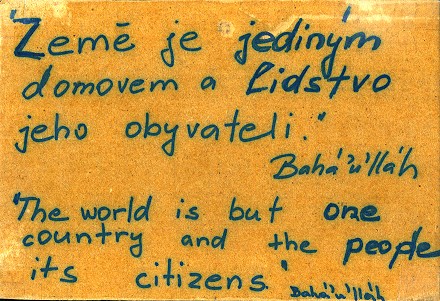 "Země je jediným
domovem a lidstvo
jeho obyvateli."
Bahá'u'lláh
"The world is but one
country and the people
its citizens."
Bahá'u'lláh